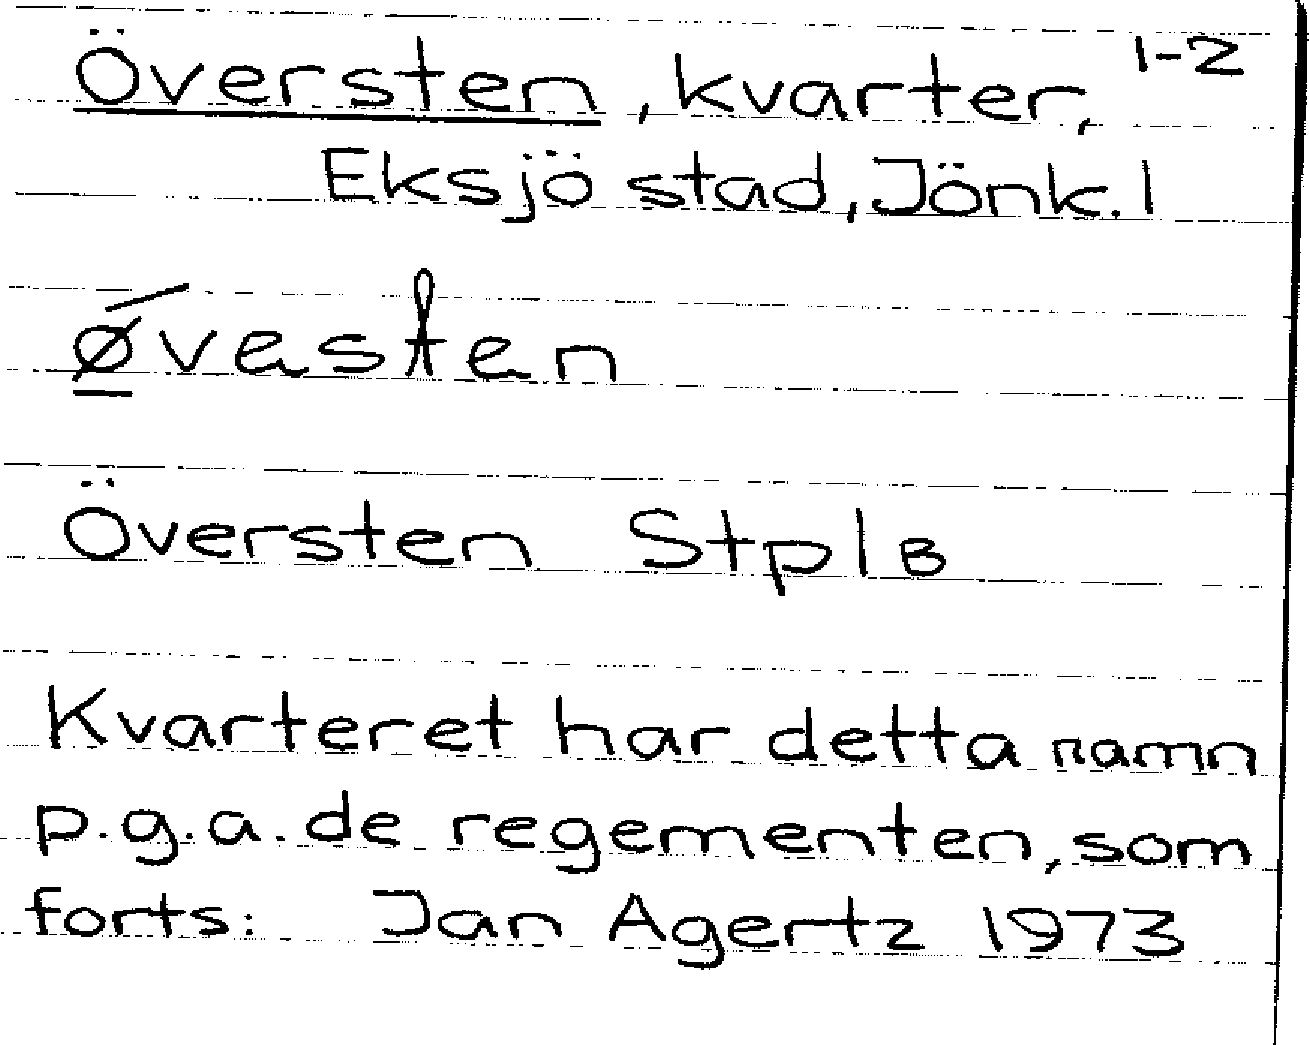 Översten, kvarter, 1-2
Eksjö stad, Jönk. l
ǿvesten
Översten Stpl B
Kvarteret har detta namn
p.g.a. de regementen, som
forts: Jan Agertz 1973